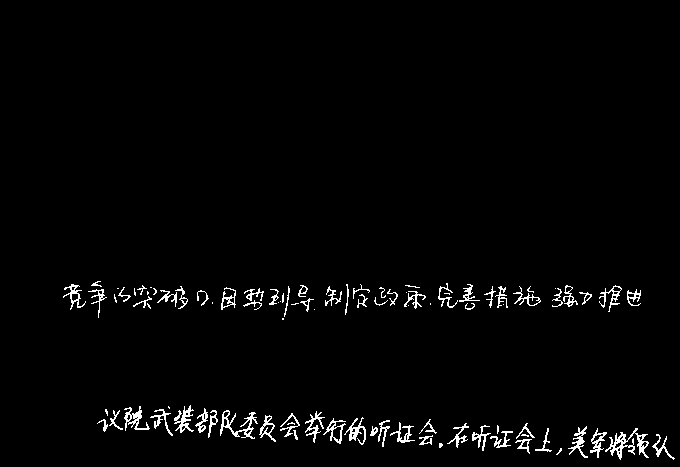 竞争的突破口.因势利导.制定政策.完善措施 强力推进
议院武装部队委员会举行的听证会.在听证会上,美军将领认